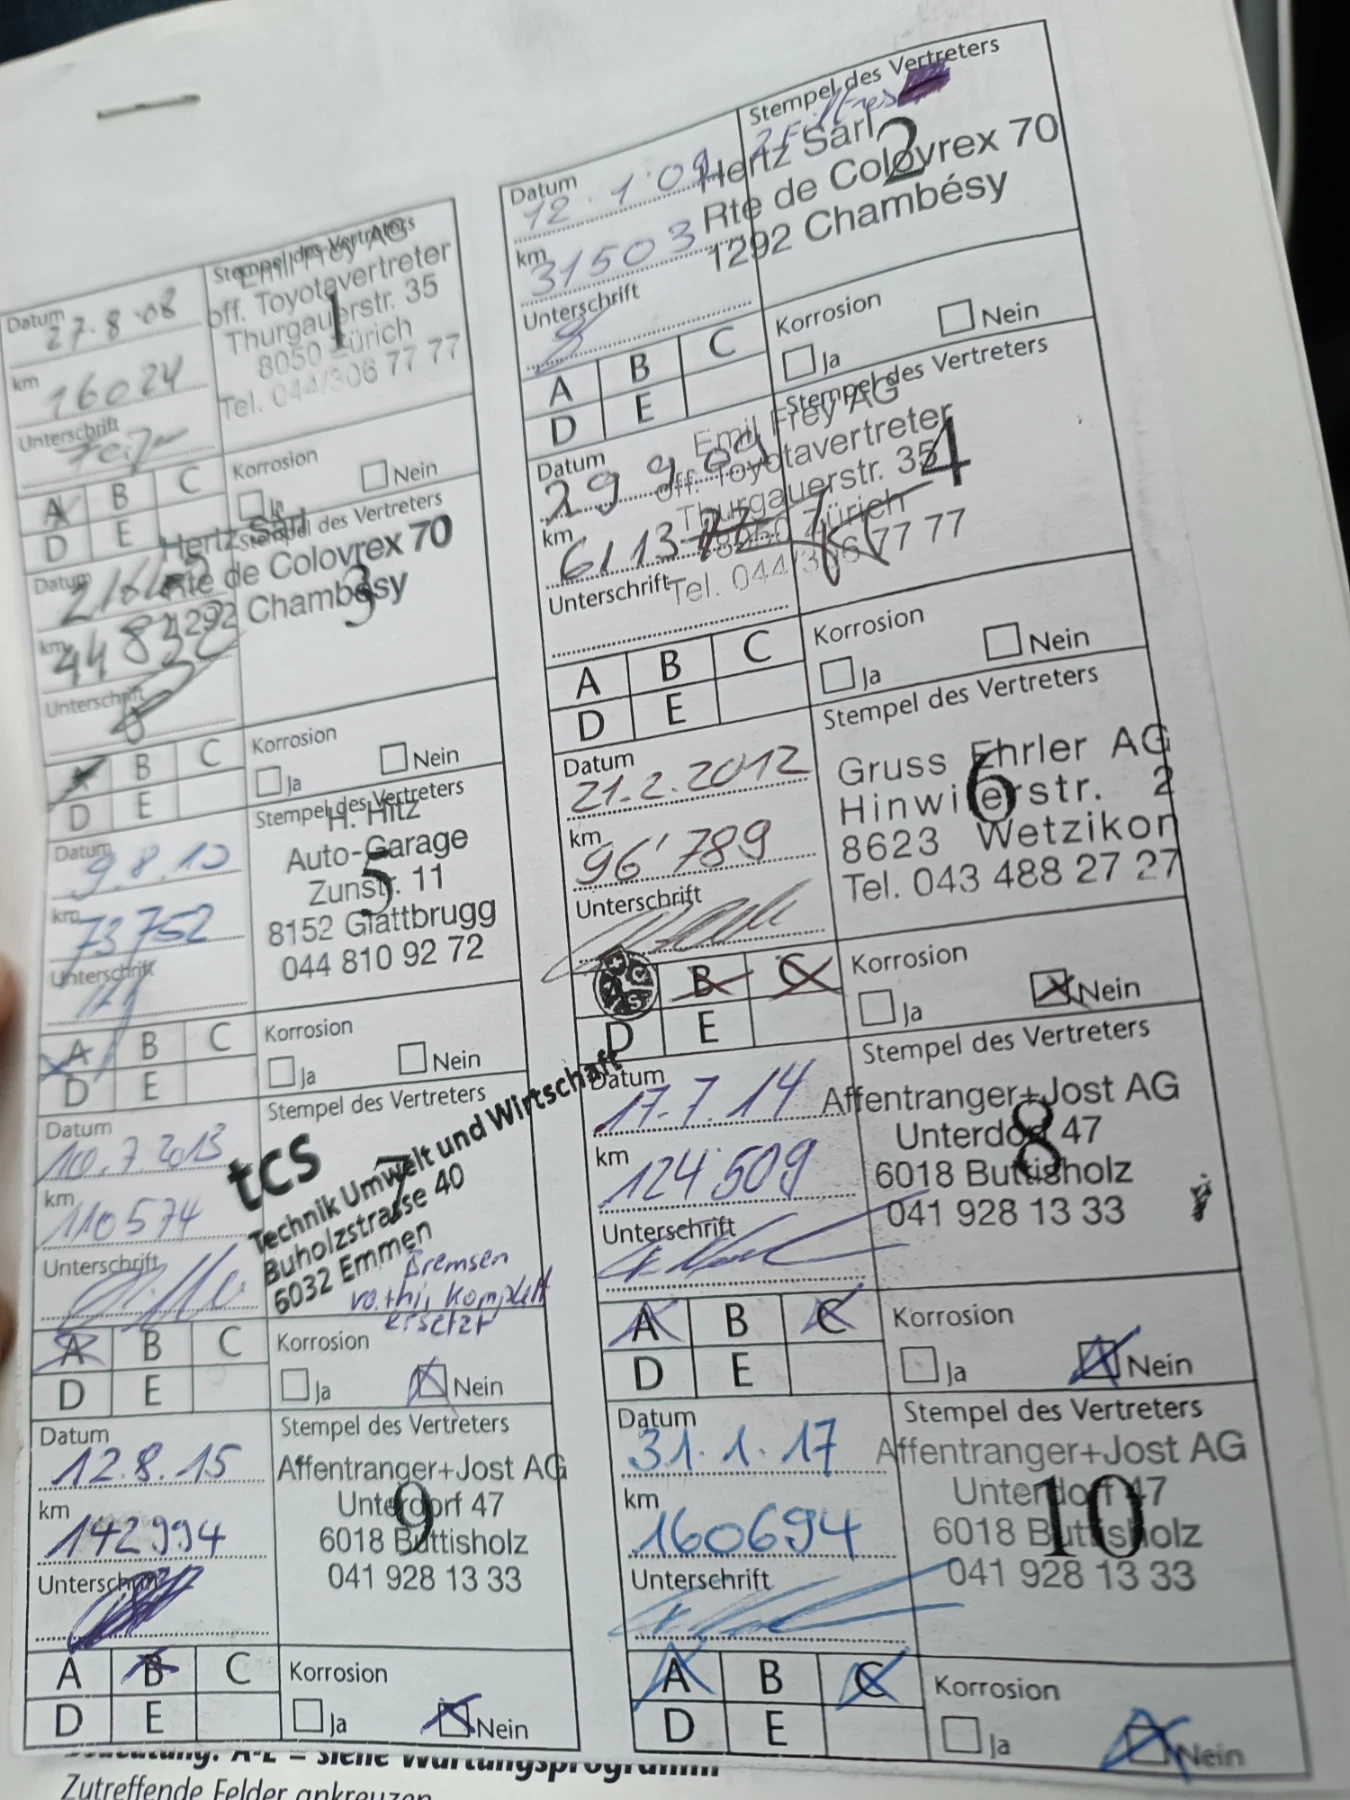 Stempel des Vertreters
Emil Frey AG
off. Toyotavertreter
Thurgauerstr. 35
8050 Zürich
Tel. 044/306 77 77
1
Datum 27.8.08
km 16024
Unterschrift
A B C
D E
Korrosion
Ja Nein
Stempel des Vertreters
2 Filtres
Hertz Sàrl
Rte de Colovrex 70
1292 Chambésy
2
Datum 12.1.09
km 31503
Unterschrift
A B C
D E
Korrosion
Ja Nein
Stempel des Vertreters
Hertz Sàrl
Rte de Colovrex 70
1292 Chambésy
3
Datum
km 44832
Unterschrift
A B C
D E
Korrosion
Ja Nein
Stempel des Vertreters
Emil Frey AG
off. Toyotavertreter
Thurgauerstr. 35
8050 Zürich
Tel. 044/306 77 77
4
Datum 29.9.09
km
Unterschrift
A B C
D E
Korrosion
Ja Nein
Stempel des Vertreters
H. Hitz
Auto-Garage
Zunstr. 11
8152 Glattbrugg
044 810 92 72
5
Datum 9.8.10
km 73752
Unterschrift
A B C
D E
Korrosion
Ja Nein
Stempel des Vertreters
Gruss Ehrler AG
Hinwilerstr. 2
8623 Wetzikon
Tel. 043 488 27 27
6
Datum 21.2.2012
km 96'789
Unterschrift
A B C
D E
Korrosion
Ja Nein
Stempel des Vertreters
tcs
Technik Umwelt und Wirtschaft
Buholzstrasse 40
6032 Emmen
7
Bremsen
vo.+hi. komplett
ersetzt
Datum 10.7.2013
km 110574
Unterschrift
A B C
D E
Korrosion
Ja Nein
Stempel des Vertreters
Affentranger+Jost AG
Unterdorf 47
6018 Buttisholz
041 928 13 33
8
Datum 17.7.14
km 124'509
Unterschrift
A B C
D E
Korrosion
Ja Nein
Stempel des Vertreters
Affentranger+Jost AG
Unterdorf 47
6018 Buttisholz
041 928 13 33
9
Datum 12.8.15
km 142994
Unterschrift
A B C
D E
Korrosion
Ja Nein
Stempel des Vertreters
Affentranger+Jost AG
Unterdorf 47
6018 Buttisholz
041 928 13 33
10
Datum 31.1.17
km 160694
Unterschrift
A B C
D E
Korrosion
Ja Nein
Bedeutung: A-E = siehe Wartungsprogramm
Zutreffende Felder ankreuzen